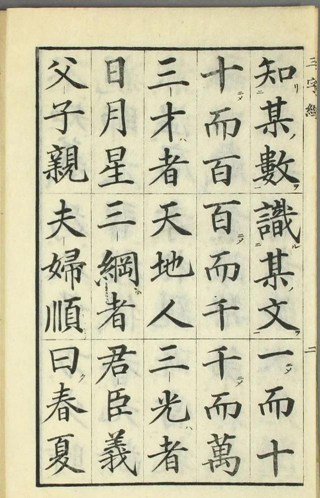 三字經 二
知某數識某文一而十
十而百百而千千而萬
三才者天地人三光者
日月星三綱者君臣義
父子親夫婦順曰春夏